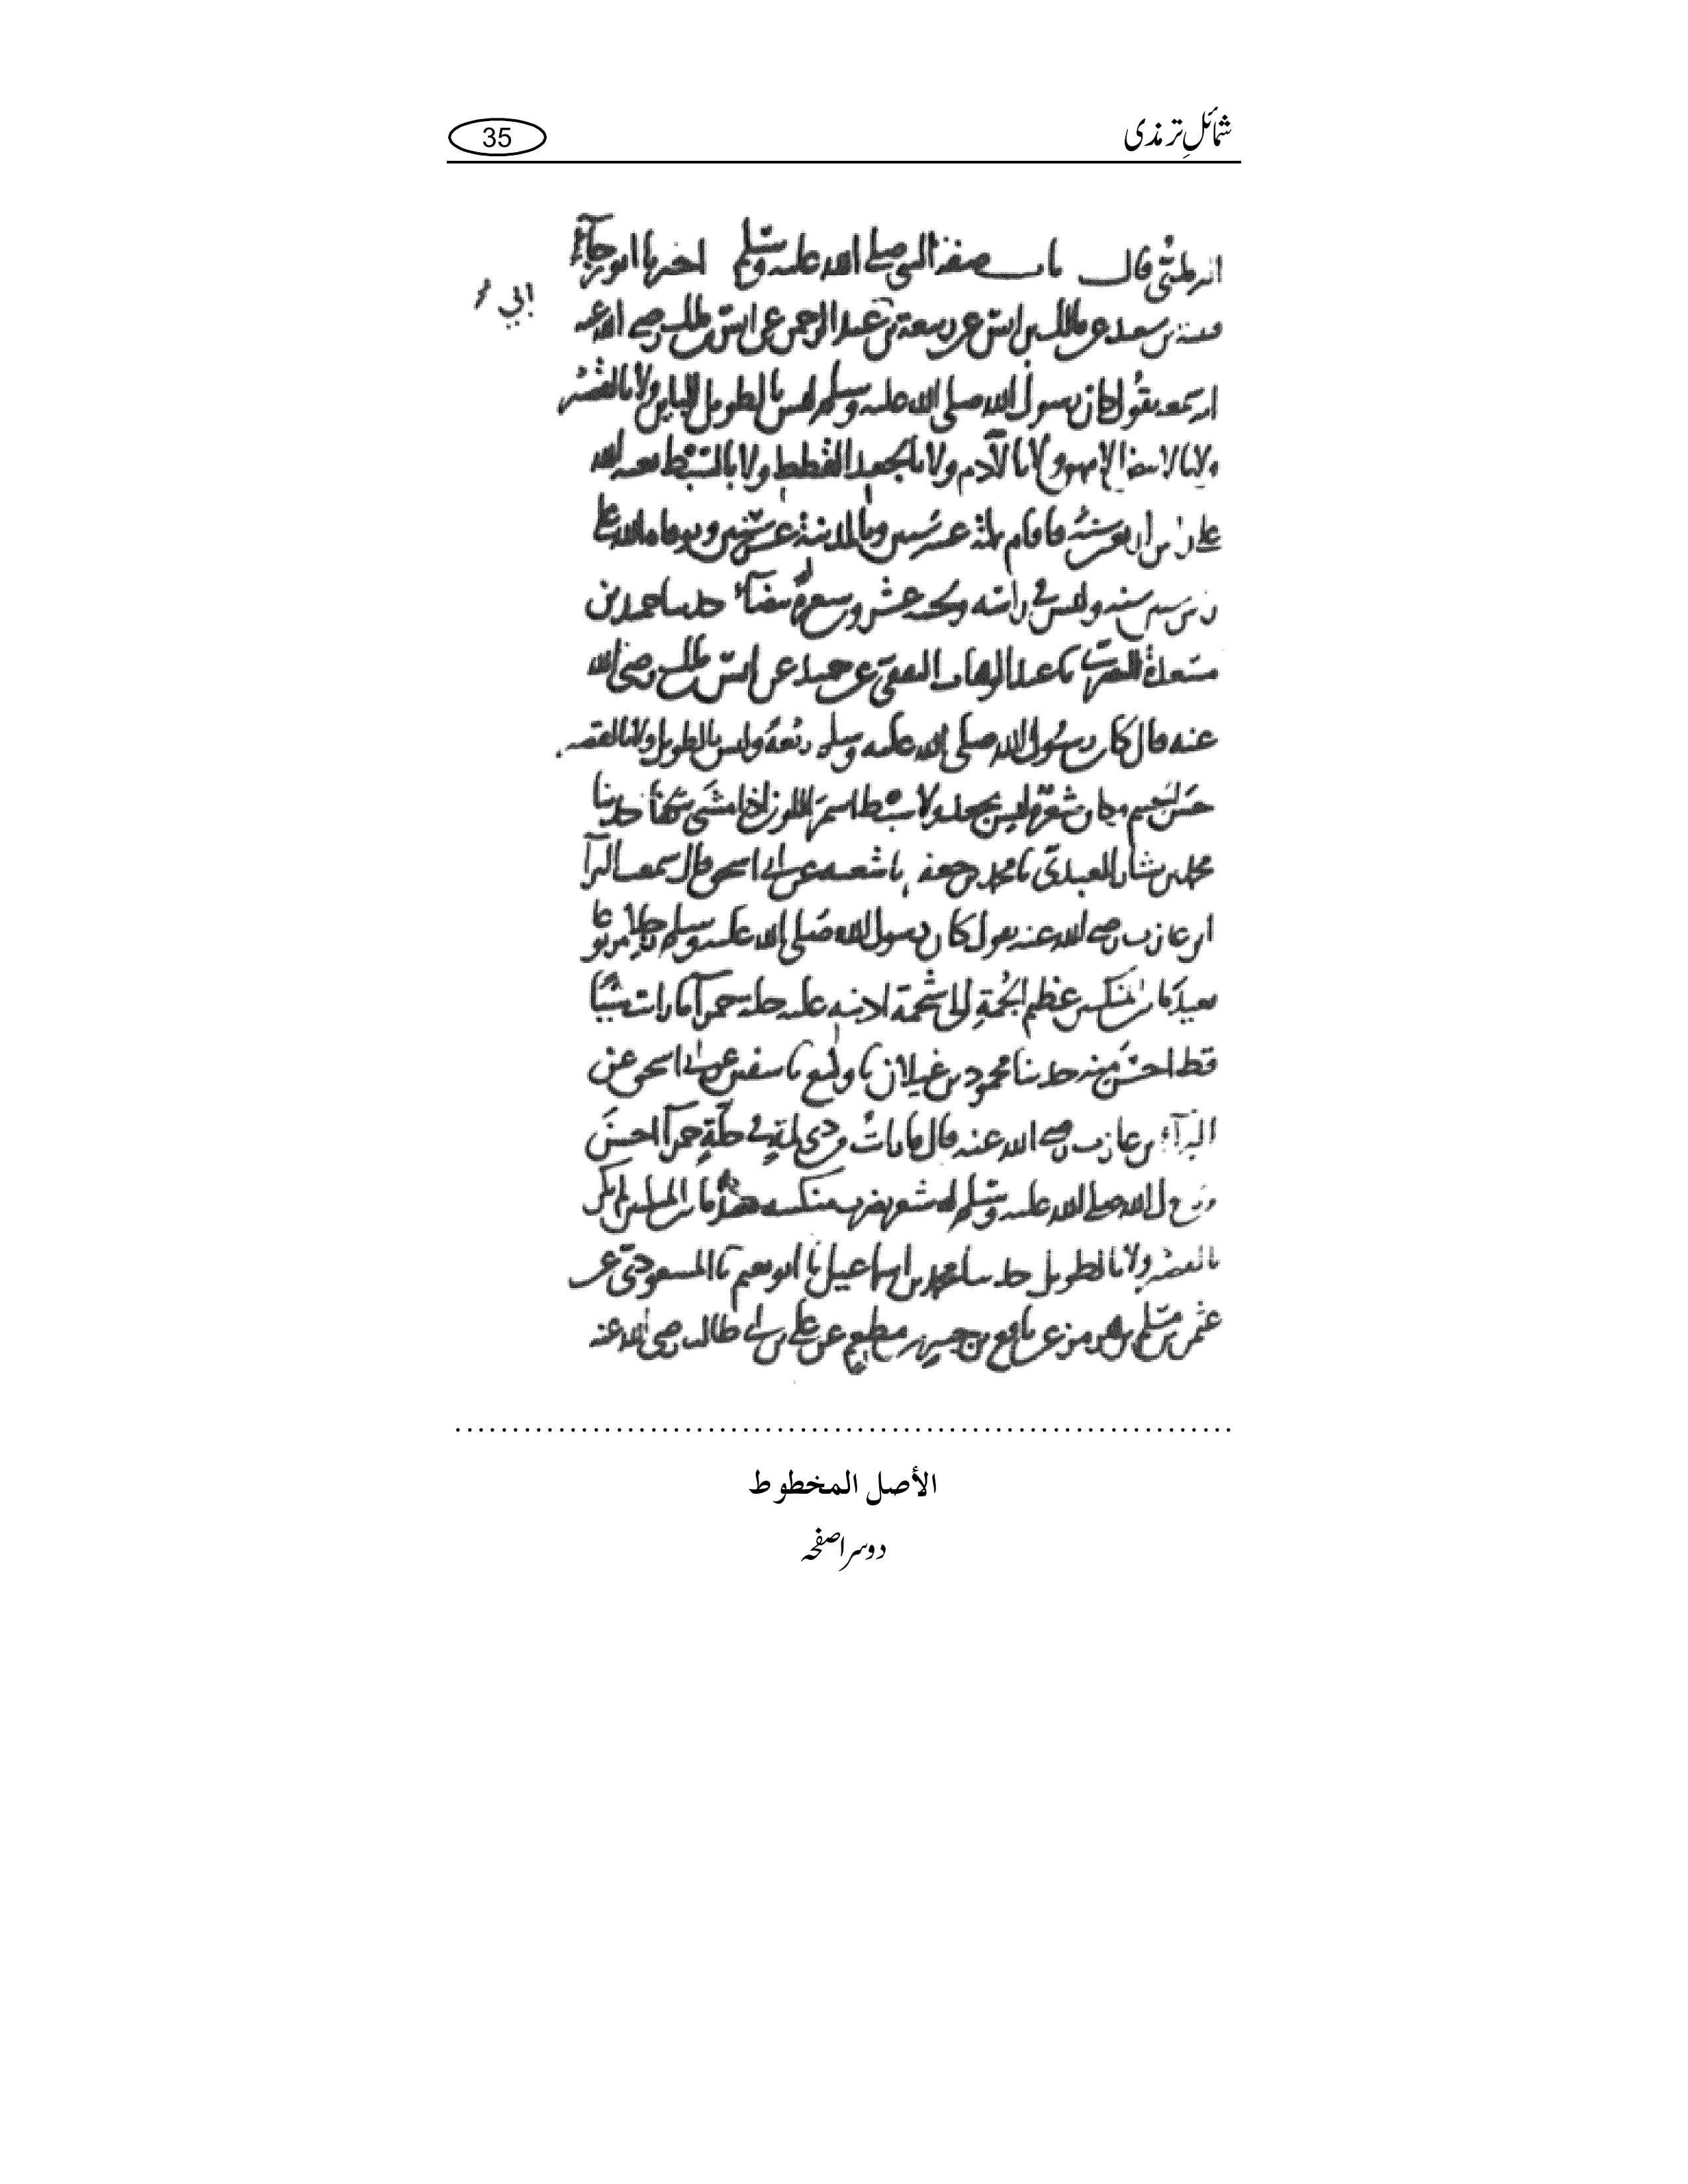 شمائلِ ترمذی
35
قال باب صفة النبي صلى الله عليه وسلم اخبرنا ابو رجاء
ابي
قتيبة بن سعيد عن مالك بن انس عن ربيعة بن عبد الرحمن عن انس بن ملك رضي الله عنه
انه سمعه يقول كان رسول الله صلى الله عليه وسلم ليس بالطويل الباين ولا بالقصير
ولا بالابيض الامهق ولا بالآدم ولا بالجعد القطط ولا بالسَّبْط بعثه الله
على راس اربعين سنة فاقام بمكة عشر سنين وبالمدينة عشر سنين وتوفاه الله على
راس ستين سنة وليس في راسه ولحيته عشرون شعرة بيضآء حدثنا احمد بن
مسعدة البصري نا عبد الوهاب الثقفي عن حميد عن انس بن ملك رضي الله
عنه قال كان رسول الله صلى الله عليه وسلم ربْعةً وليس بالطويل ولا بالقصير
حسَن الجسم وكان شعره ليس بجعد ولا سَبْط اسمَر اللون اذا مشَى حدثنا
محمد بن بشار العبدي نا محمد بن جعفر نا شعبة عن ابي اسحق قال سمعت البرآ
ابن عازب رضي الله عنه يقول كان رسول الله صلى الله عليه وسلم رجلا مربوعا
بعيدَ ما بين المَنكبين عظيم الجُمّةِ الى شحمة اذنيه عليه حلة حمرآ ما رايت شيئًا
قط احسَن منه حدثنا محمود بن غيلان نا وكيع نا سفين عن ابي اسحق عن
البرآء بن عازب رضي الله عنه قال ما رايتُ من ذي لِمّةٍ في حلّةٍ حمرآ احسنَ
من رسول الله صلى الله عليه وسلم له شعر يضرب منكبيه بعيدُ ما بين المنكبين لم يكن
بالقصير ولا بالطويل حدثنا محمد بن اسماعيل نا ابو نعيم نا المسعودي عن
عثمن بن مسلم بن هرمز عن نافع بن جبير بن مطعم عن علي بن ابي طالب رضي الله عنه
الأصل المخطوط
دوسرا صفحہ